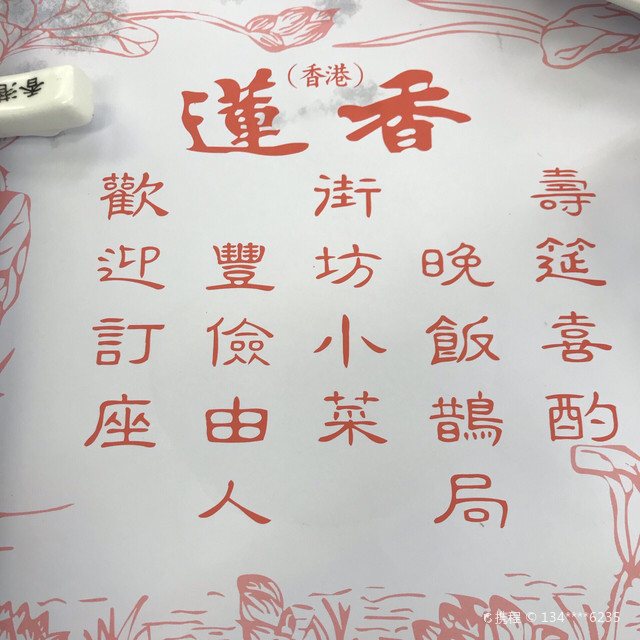 （香港）
蓮香
壽筵喜酌
晚飯鵲局
街坊小菜
豐儉由人
歡迎訂座
香港
携程 © 134****6235